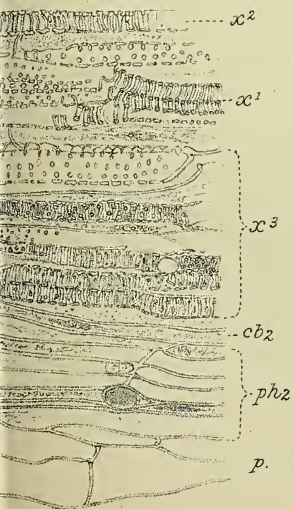 x²
x¹
x³
cb₂
ph₂
p.